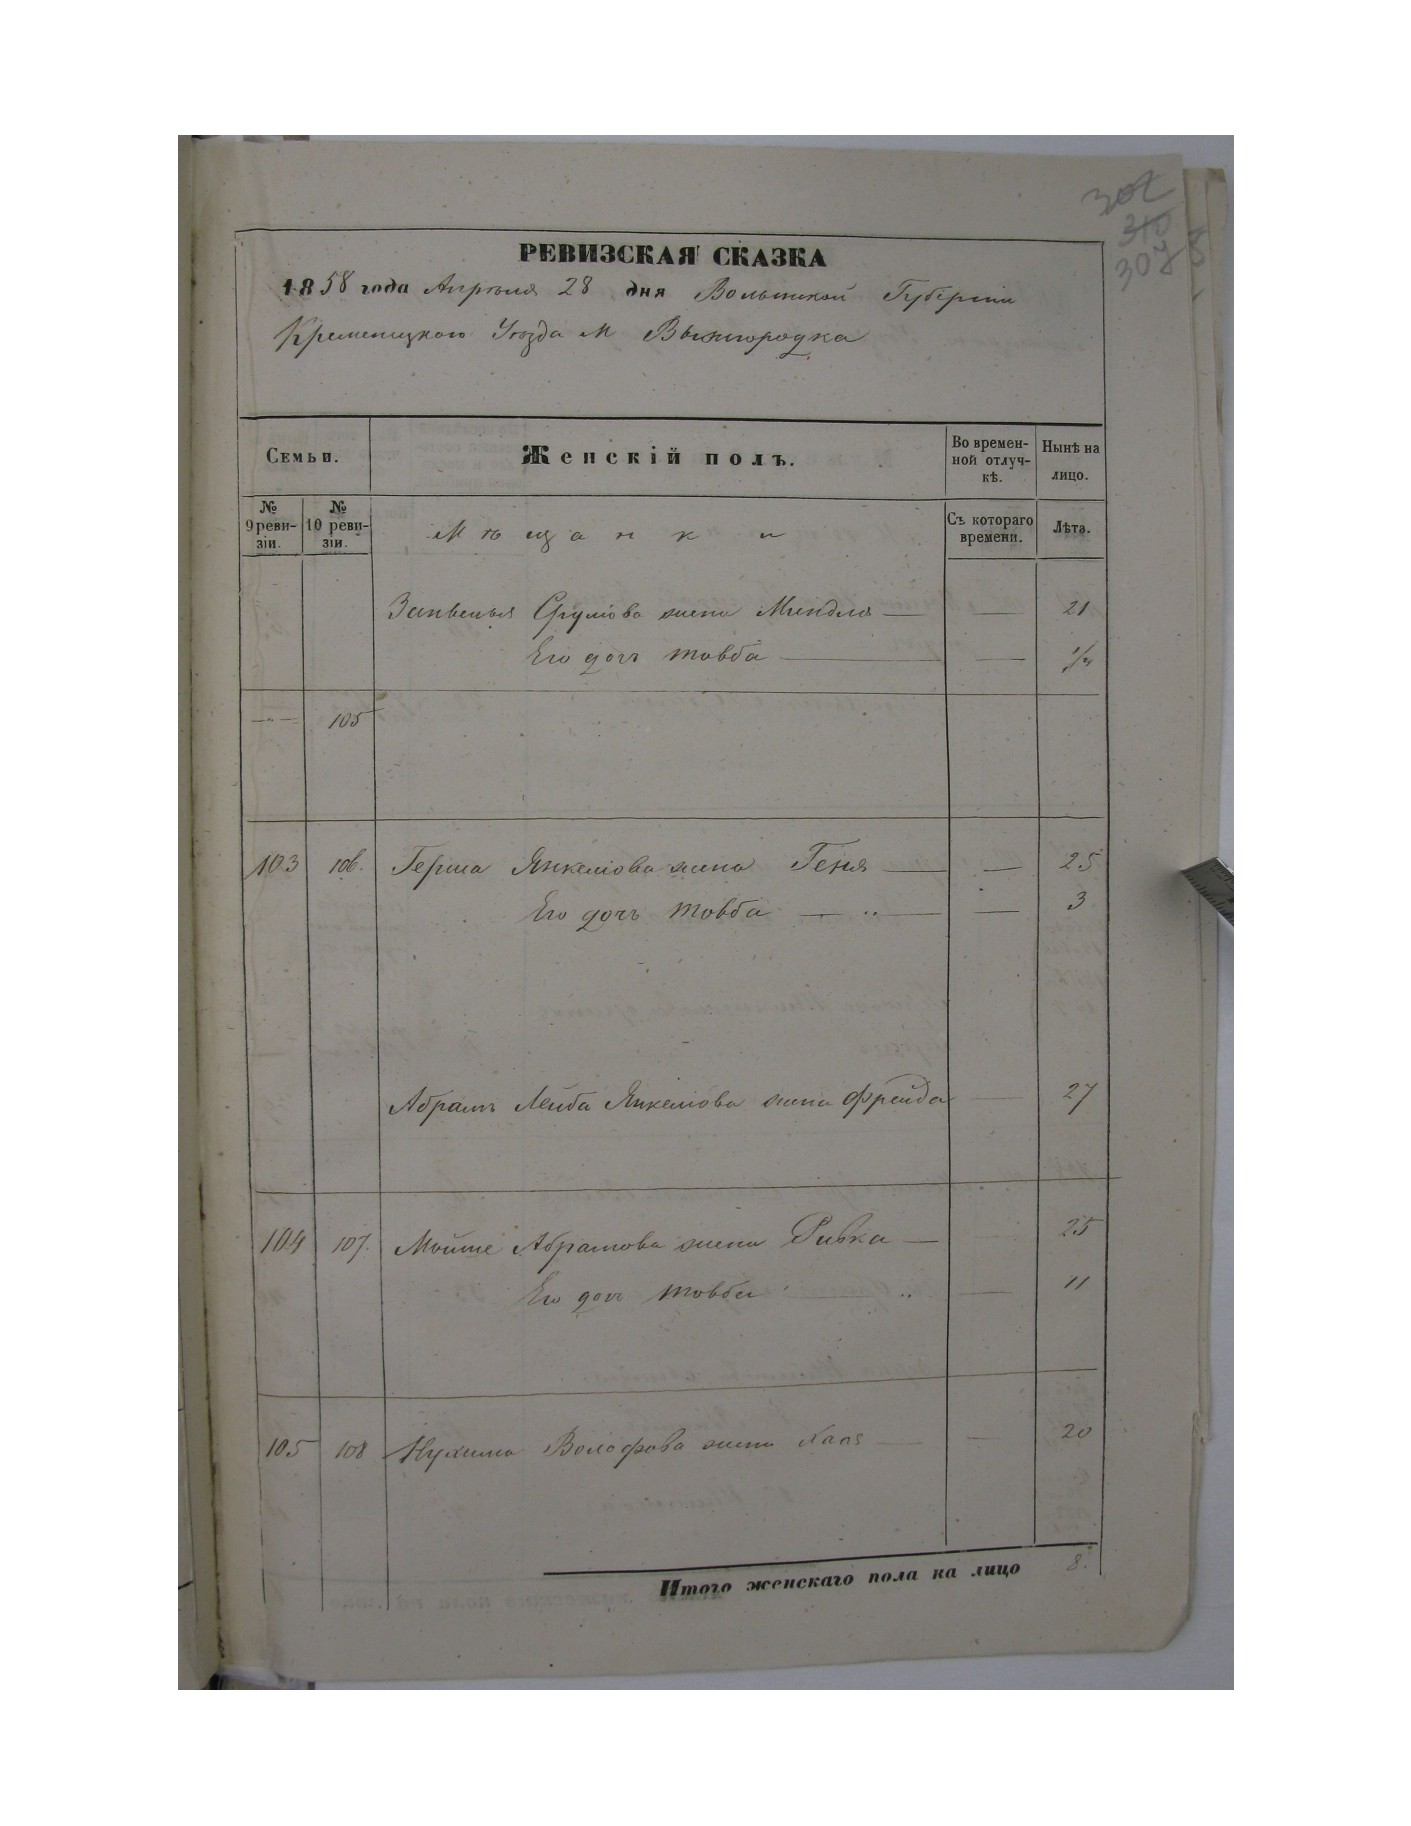 302
310
307
РЕВИЗСКАЯ СКАЗКА
1858 года Апреля 28 дня Волынской Губернии
Кременецкаго Уезда М Вышгородка
Семьи.
Женскій полъ.
Во времен-
ной отлуч-
кѣ.
Нынѣ на
лицо.
№
9 реви-
зіи.
№
10 реви-
зіи.
Мѣщанки
Съ котораго
времени.
Лѣта.
Сруліова жена Миндля — — 21
Его дочь Товба — —
— " — 105
103 106. Герша Янкеліова жена Геня — — 25
Его дочь Товба — " — — 3
Абрамъ Лейба Янкеліова жена Фрейда — 27
104 107. Мойше Абрамова жена Ривка — 25
Его дочь Товба — " — 11
105 108 Нухима Вольфова жена Хая — — 20
Итого женскаго пола на лицо 8.